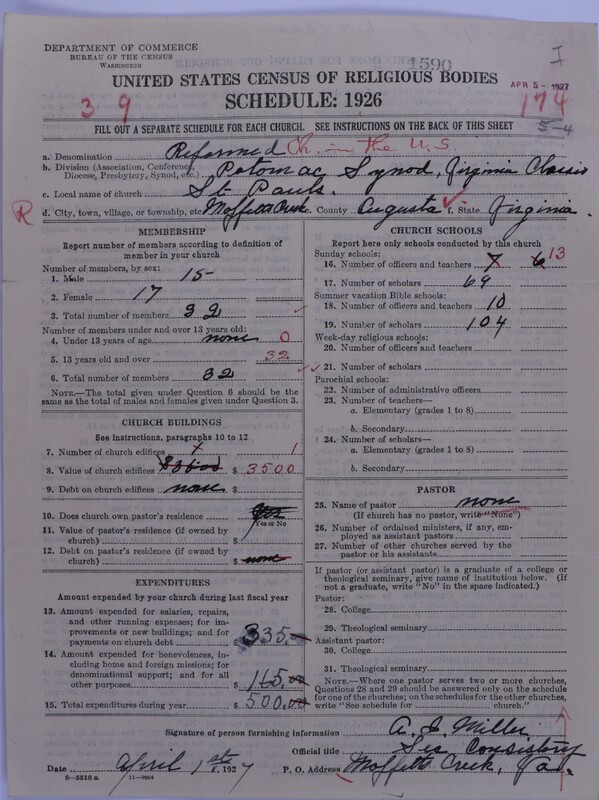 DEPARTMENT OF COMMERCE
BUREAU OF THE CENSUS
WASHINGTON
1590
I
UNITED STATES CENSUS OF RELIGIOUS BODIES
APR 5 - 1927
3 9
SCHEDULE: 1926
174
5-4
FILL OUT A SEPARATE SCHEDULE FOR EACH CHURCH. SEE INSTRUCTIONS ON THE BACK OF THIS SHEET
a. Denomination Reformed Ch. in the U.S.
b. Division (Association, Conference, Diocese, Presbytery, Synod, etc.) Potomac Synod, Virginia Classis
c. Local name of church St Pauls.
R d. City, town, village, or township, etc. Moffetts Creek e. County Augusta f. State Virginia.
MEMBERSHIP
Report number of members according to definition of
member in your church
Number of members, by sex:
1. Male 15
2. Female 17
3. Total number of members 32
Number of members under and over 13 years old:
4. Under 13 years of age none 0
5. 13 years old and over 32
6. Total number of members 32
NOTE.—The total given under Question 6 should be the
same as the total of males and females given under Question 3.
CHURCH BUILDINGS
See instructions, paragraphs 10 to 12
7. Number of church edifices 1
8. Value of church edifices $ 3500
9. Debt on church edifices none $
10. Does church own pastor's residence
Yes or No
11. Value of pastor's residence (if owned by
church) $
12. Debt on pastor's residence (if owned by
church) $ none
EXPENDITURES
Amount expended by your church during last fiscal year
13. Amount expended for salaries, repairs,
and other running expenses; for im-
provements or new buildings; and for
payments on church debt $ 335.—
14. Amount expended for benevolences, in-
cluding home and foreign missions; for
denominational support; and for all
other purposes $ 165.00
15. Total expenditures during year $ 500.00
CHURCH SCHOOLS
Report here only schools conducted by this church
Sunday schools:
16. Number of officers and teachers 7 6 13
17. Number of scholars 69
Summer vacation Bible schools:
18. Number of officers and teachers 10
19. Number of scholars 104
Week-day religious schools:
20. Number of officers and teachers
21. Number of scholars
Parochial schools:
22. Number of administrative officers
23. Number of teachers—
a. Elementary (grades 1 to 8)
b. Secondary
24. Number of scholars—
a. Elementary (grades 1 to 8)
b. Secondary
PASTOR
25. Name of pastor none
(If church has no pastor, write "None")
26. Number of ordained ministers, if any, em-
ployed as assistant pastors
27. Number of other churches served by the
pastor or his assistants
If pastor (or assistant pastor) is a graduate of a college or
theological seminary, give name of institution below. (If
not a graduate, write "No" in the space indicated.)
Pastor:
28. College
29. Theological seminary
Assistant pastor:
30. College
31. Theological seminary
NOTE.—Where one pastor serves two or more churches,
Questions 28 and 29 should be answered only on the schedule
for one of the churches; on the schedules for the other churches,
write "See schedule for church."
Signature of person furnishing information A. J. Miller
Official title Sec Consistory
Date April 1st, 1927 P. O. Address Moffetts Creek, Va.
8-5318 a 11-9064